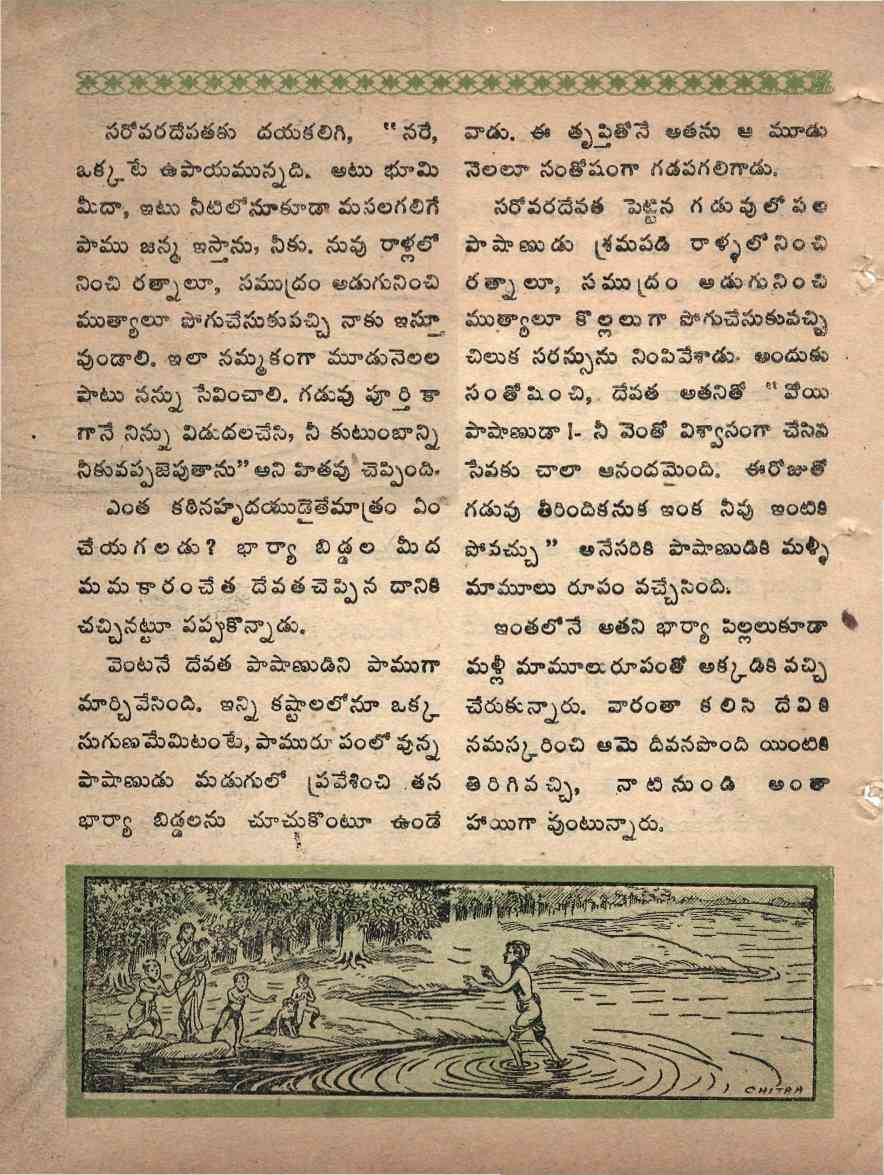 సరోవరదేవతకు దయకలిగి, “సరే,
ఒక్కటే ఉపాయమున్నది. అటు భూమి
మీదా, ఇటు నీటిలోనూకూడా మసలగలిగే
పాము జన్మ ఇస్తాను, నీకు. నువు రాళ్లలో
నించి రత్నాలూ, సముద్రం అడుగునించి
ముత్యాలూ పోగుచేసుకువచ్చి నాకు ఇస్తూ
వుండాలి. ఇలా నమ్మకంగా మూడునెలల
పాటు నన్ను సేవించాలి. గడువు పూర్తి కా
గానే నిన్ను విడుదలచేసి, నీ కుటుంబాన్ని
నీకువప్పజెపుతాను” అని హితవు చెప్పింది.
ఎంత కఠినహృదయుడైతేమాత్రం ఏం
చేయగలడు? భార్యా బిడ్డల మీద
మమకారంచేత దేవతచెప్పిన దానికి
చచ్చినట్టూ పప్పుకొన్నాడు.
వెంటనే దేవత పాషాణుడిని పాముగా
మార్చివేసింది. ఇన్ని కష్టాలలోనూ ఒక్క
సుగుణమేమిటంటే, పామురూపంలో వున్న
పాషాణుడు మడుగులో ప్రవేశించి తన
భార్యా బిడ్డలను చూచుకొంటూ ఉండే
వాడు. ఈ తృప్తితోనే అతను ఆ మూడు
నెలలూ సంతోషంగా గడపగలిగాడు.
సరోవరదేవత పెట్టిన గడువులోపల
పాషాణుడు శ్రమపడి రాళ్ళలోనించి
రత్నాలూ, సముద్రం అడుగునించి
ముత్యాలూ కొల్లలుగా పోగుచేసుకువచ్చి
చిలుక సరస్సును నింపివేశాడు. అందుకు
సంతోషించి, దేవత అతనితో “వోయి
పాషాణుడా!- నీ వెంతో విశ్వాసంగా చేసిన
సేవకు చాలా ఆనందమైంది. ఈరోజుతో
గడువు తీరిందికనుక ఇంక నీవు ఇంటికి
పోవచ్చు” అనేసరికి పాషాణుడికి మళ్ళీ
మామూలు రూపం వచ్చేసింది.
ఇంతలోనే అతని భార్యా పిల్లలుకూడా
మళ్లీ మామూలురూపంతో అక్కడికి వచ్చి
చేరుకున్నారు. వారంతా కలిసి దేవికి
నమస్కరించి ఆమె దీవనపొంది యింటికి
తిరిగివచ్చి, నాటినుండి అంతా
హాయిగా వుంటున్నారు.
CHITRA